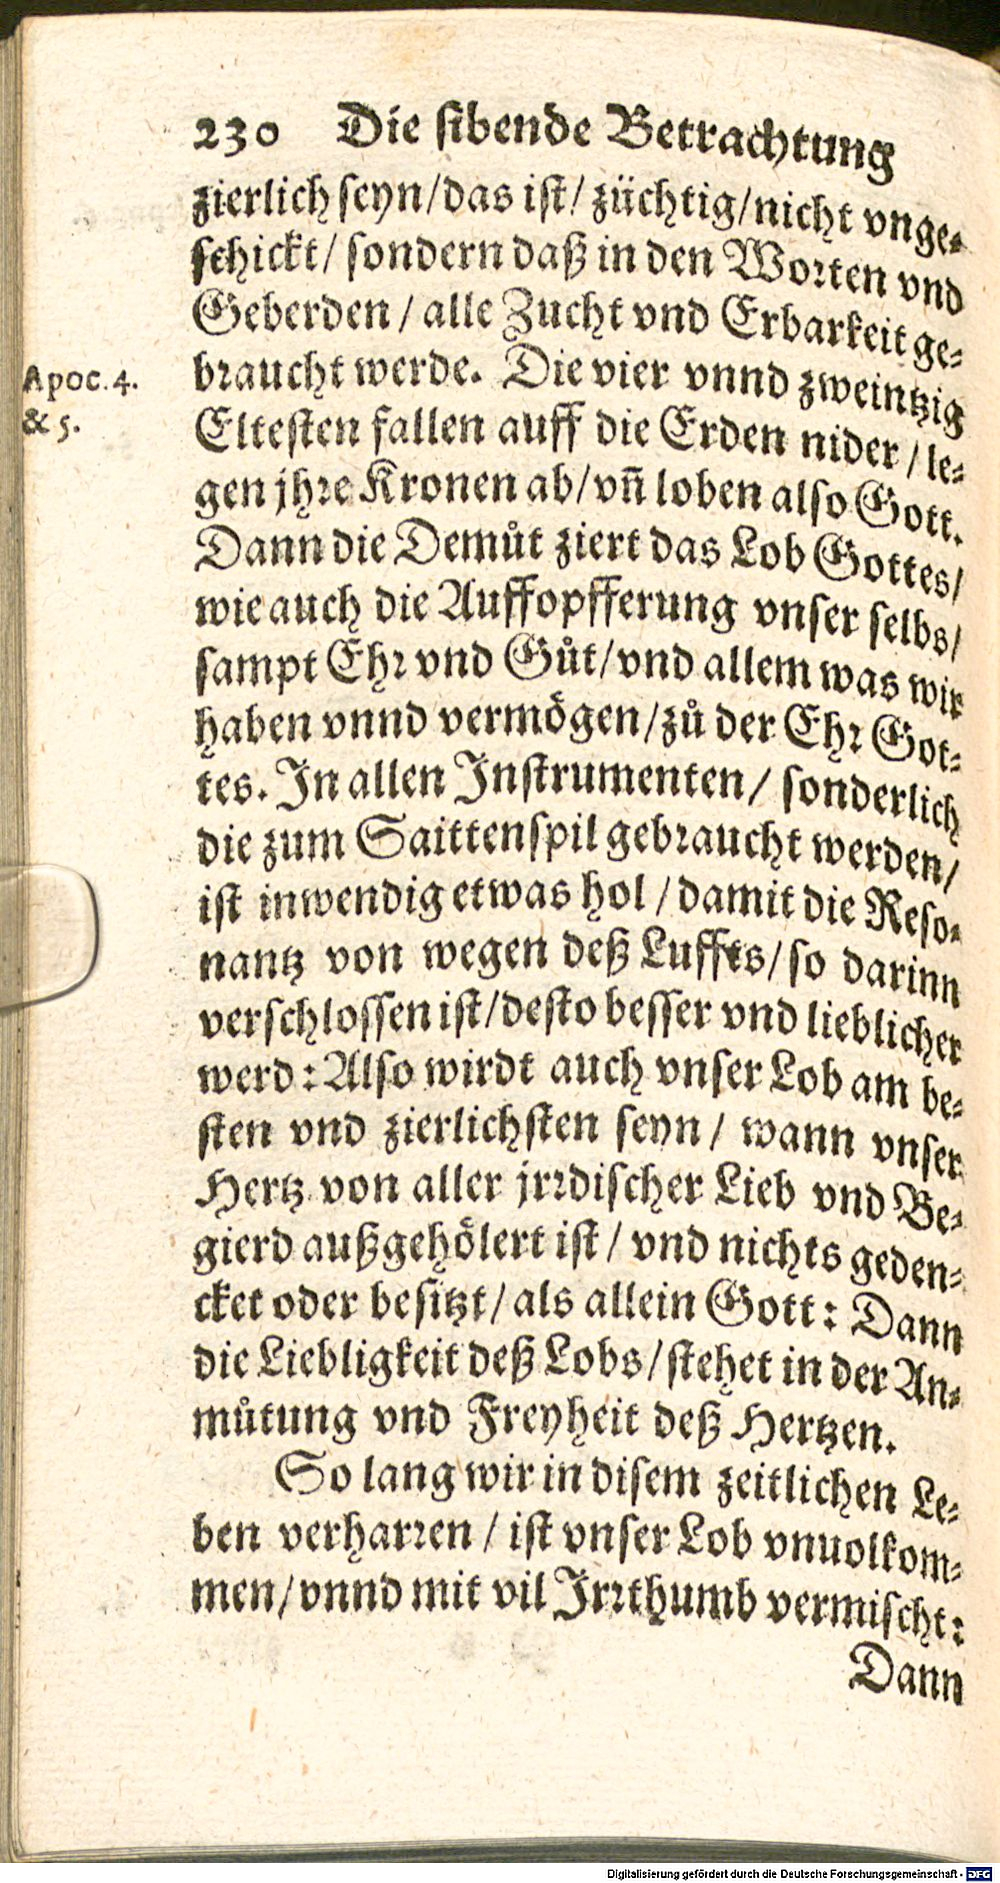 230 Die sibende Betrachtung
zierlich seyn/das ist/ züchtig/nicht vnge-
schickt/ sondern daß in den Worten vnd
Geberden / alle Zucht vnd Erbarkeit ge-
braucht werde. Die vier vnnd zweintzig
Apoc. 4.
& 5.
Eltesten fallen auff die Erden nider / le-
gen jhre Kronen ab/vn̄ loben also Gott.
Dann die Demůt ziert das Lob Gottes/
wie auch die Auffopfferung vnser selbs/
sampt Ehr vnd Gůt/vnd allem was wir
haben vnnd vermögen/zů der Ehr Got-
tes. In allen Instrumenten / sonderlich
die zum Saittenspil gebraucht werden/
ist inwendig etwas hol / damit die Reso-
nantz von wegen deß Luffts/ so darinn
verschlossen ist/desto besser vnd lieblicher
werd : Also wirdt auch vnser Lob am be-
sten vnd zierlichsten seyn / wann vnser
Hertz von aller jrrdischer Lieb vnd Be-
gierd außgehölert ist / vnd nichts geden-
cket oder besitzt/ als allein Gott : Dann
die Liebligkeit deß Lobs/ stehet in der An-
můtung vnd Freyheit deß Hertzen.
So lang wir in disem zeitlichen Le-
ben verharren / ist vnser Lob vnuolkom-
men/vnnd mit vil Irrthumb vermischt:
Dann
Digitalisierung gefördert durch die Deutsche Forschungsgemeinschaft - DFG